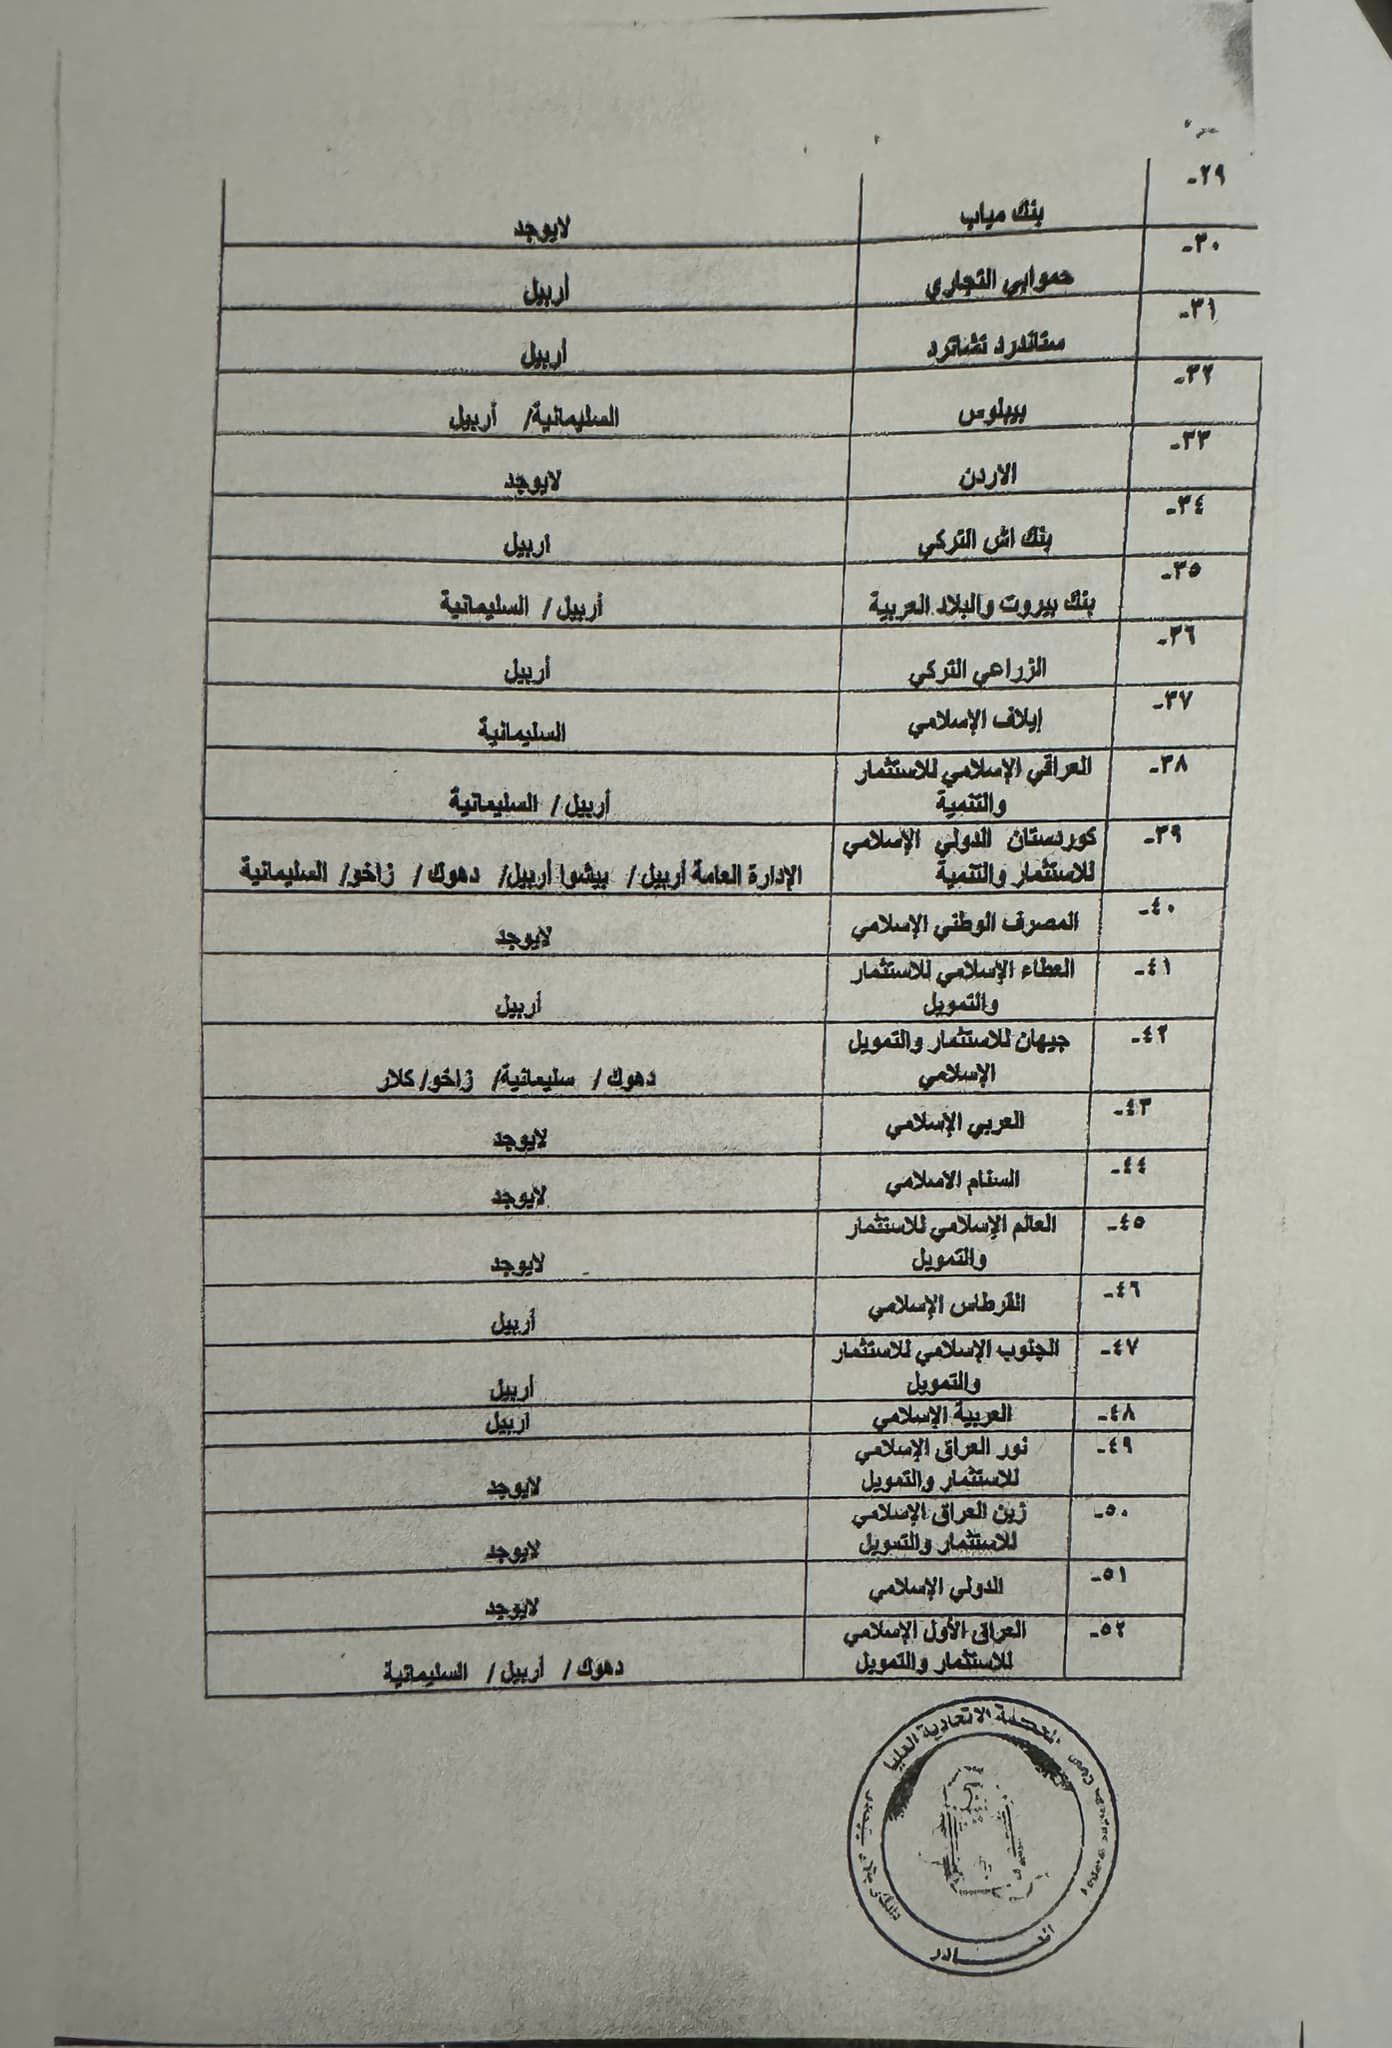 ٢٩-
بنك مياب
لايوجد
٣٠-
حموابي التجاري
أربيل
٣١-
ستاندرد تشاترد
أربيل
٣٢-
بيبلوس
السليمانية/ أربيل
٣٣-
الاردن
لايوجد
٣٤-
بنك اش التركي
اربيل
٣٥-
بنك بيروت والبلاد العربية
أربيل / السليمانية
٣٦-
الزراعي التركي
أربيل
٣٧-
إيلاف الإسلامي
السليمانية
٣٨-
العراقي الإسلامي للاستثمار
والتنمية
أربيل / السليمانية
٣٩-
كوردستان الدولي الإسلامي
للاستثمار والتنمية
الإدارة العامة أربيل / بيشوا أربيل/ دهوك / زاخو/ السليمانية
٤٠-
المصرف الوطني الإسلامي
لايوجد
٤١-
العطاء الإسلامي للاستثمار
والتمويل
أربيل
٤٢-
جيهان للاستثمار والتمويل
الإسلامي
دهوك / سليمانية/ زاخو/ كلار
٤٣-
العربي الإسلامي
لايوجد
٤٤-
السنام الاسلامي
لايوجد
٤٥-
العالم الإسلامي للاستثمار
والتمويل
لايوجد
٤٦-
القرطاس الإسلامي
أربيل
٤٧-
الجنوب الإسلامي للاستثمار
والتمويل
أربيل
٤٨-
العربية الإسلامي
اربيل
٤٩-
نور العراق الإسلامي
للاستثمار والتمويل
لايوجد
٥٠-
زين العراق الإسلامي
للاستثمار والتمويل
لايوجد
٥١-
الدولي الإسلامي
لايوجد
٥٢-
العراق الأول الإسلامي
للاستثمار والتمويل
دهوك / أربيل / السليمانية
المحكمة الاتحادية العليا